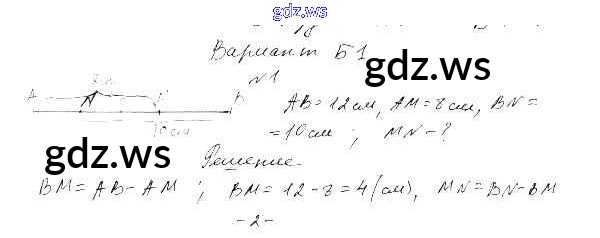 gdz.ws
Вариант Б1
gdz.ws
№1
A N B
AB=12см, AM=8см, BN=
10см
=10см ; MN-?
gdz.ws
Решение
BM=AB-AM ; BM=12-8=4(см), MN=BN-BM
-2-